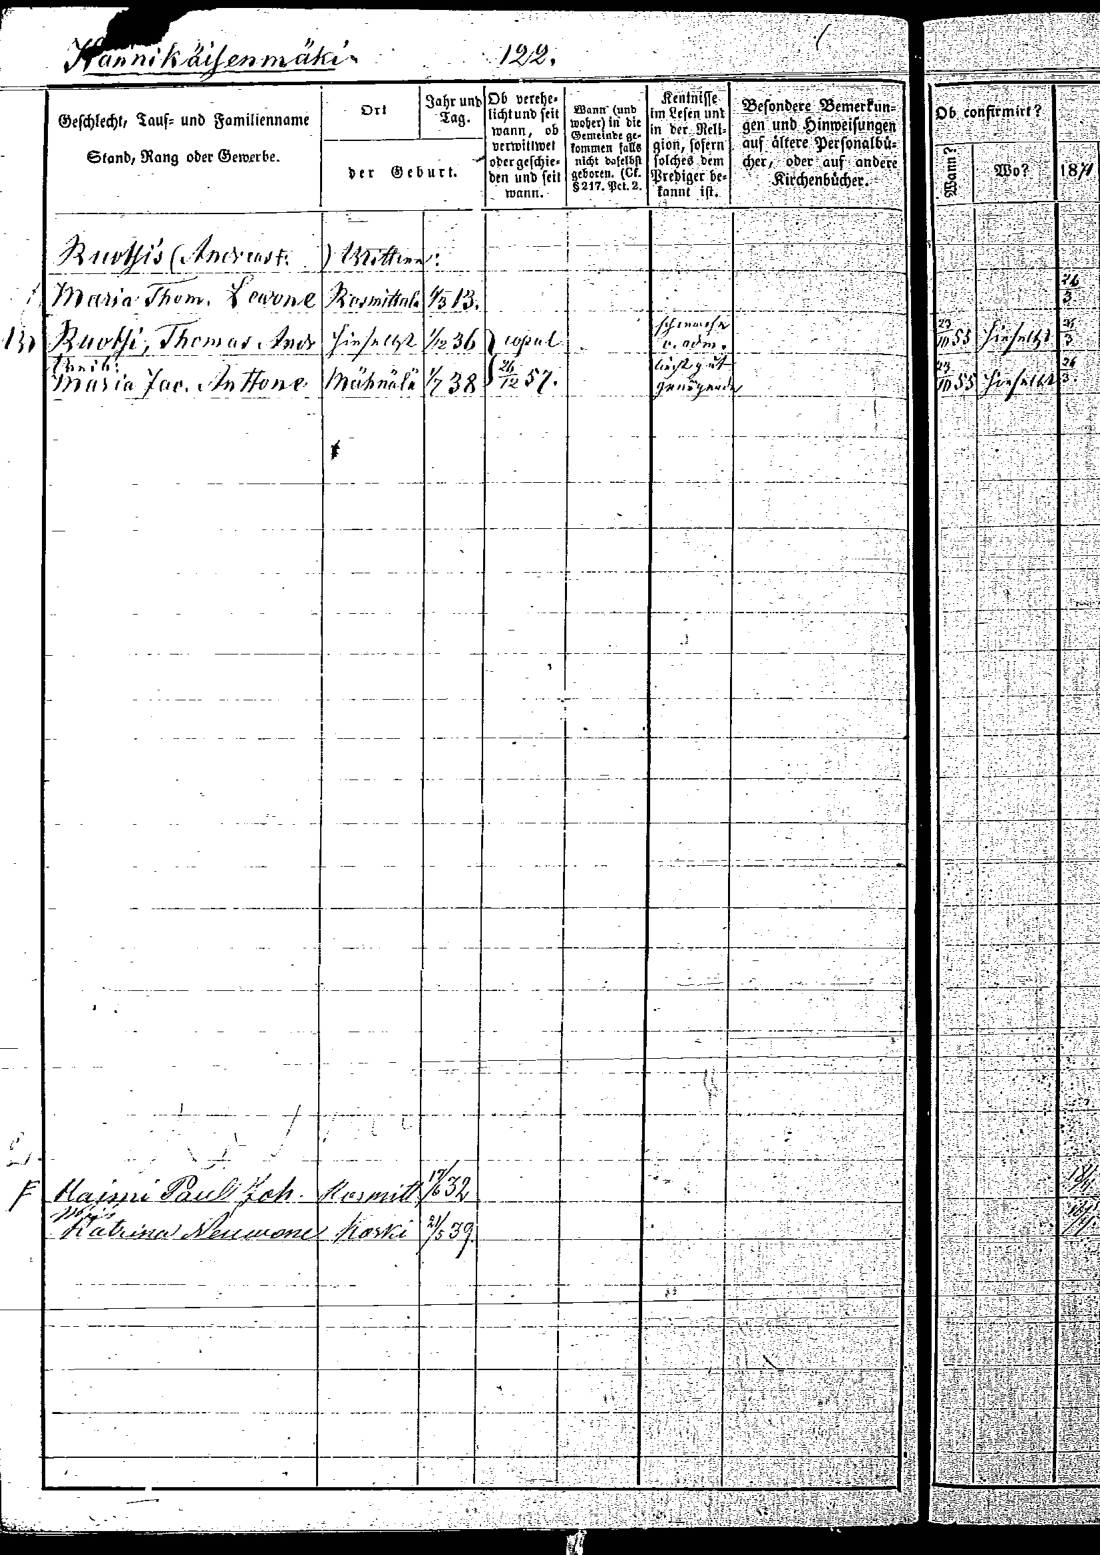 Kannikäisenmäki. 122.
Geschlecht, Tauf- und Familienname
Stand, Rang oder Gewerbe.
Ort
Jahr und Tag.
der Geburt.
Ob verehe-
licht und seit
wann, ob
verwittwet
oder geschie-
den und seit
wann.
Wann (und
woher) in die
Gemeinde ge-
kommen falls
nicht daselbst
geboren. (Cf.
§ 217. Pct. 2.
Kentnisse
im Lesen und
in der Reli-
gion, sofern
solches dem
Prediger be-
kannt ist.
Besondere Bemerkun-
gen und Hinweisungen
auf ältere Personalbü-
cher, oder auf andere
Kirchenbücher.
Ob confirmirt?
Wann?
Wo?
1871
Ruotsis (Andreas †. ) Wittwe:
Maria Thom. Lewone Rosmittala 4/3 13. 26/3
Ruotsi, Thomas Andr hieselbst 1/12 36 } copul 23/10 55 hieselbst 26/3
Weib:
Maria Jac. Anttone Mähnälä 1/7 38 26/12 57. liest gut 23/10 55 hieselbst 26/3.
genügend
F Haimi Paul Joh. Kosmitt 17/6 32
Katrina Neuwone Koski 21/5 39.